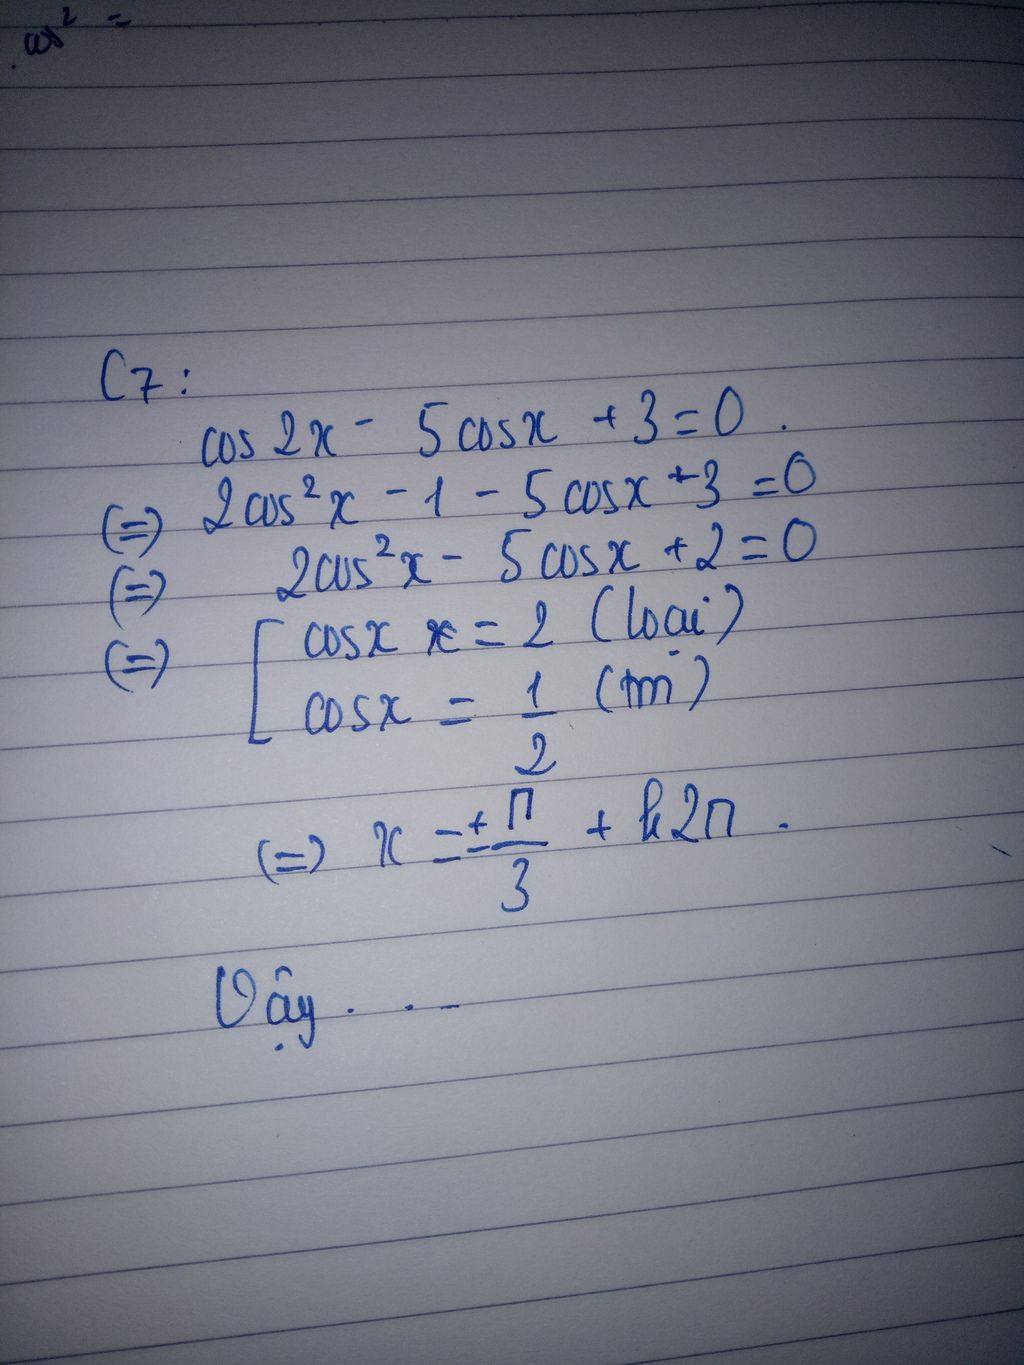 cos² =
C7:
cos2x - 5cosx + 3 = 0.
(=) 2cos²x - 1 - 5cosx + 3 = 0
(=) 2cos²x - 5cosx + 2 = 0
(=) [ cosx = 2 (loại)
cosx = 1/2 (tm)
(=) x = ± π/3 + k2π.
Vậy ....